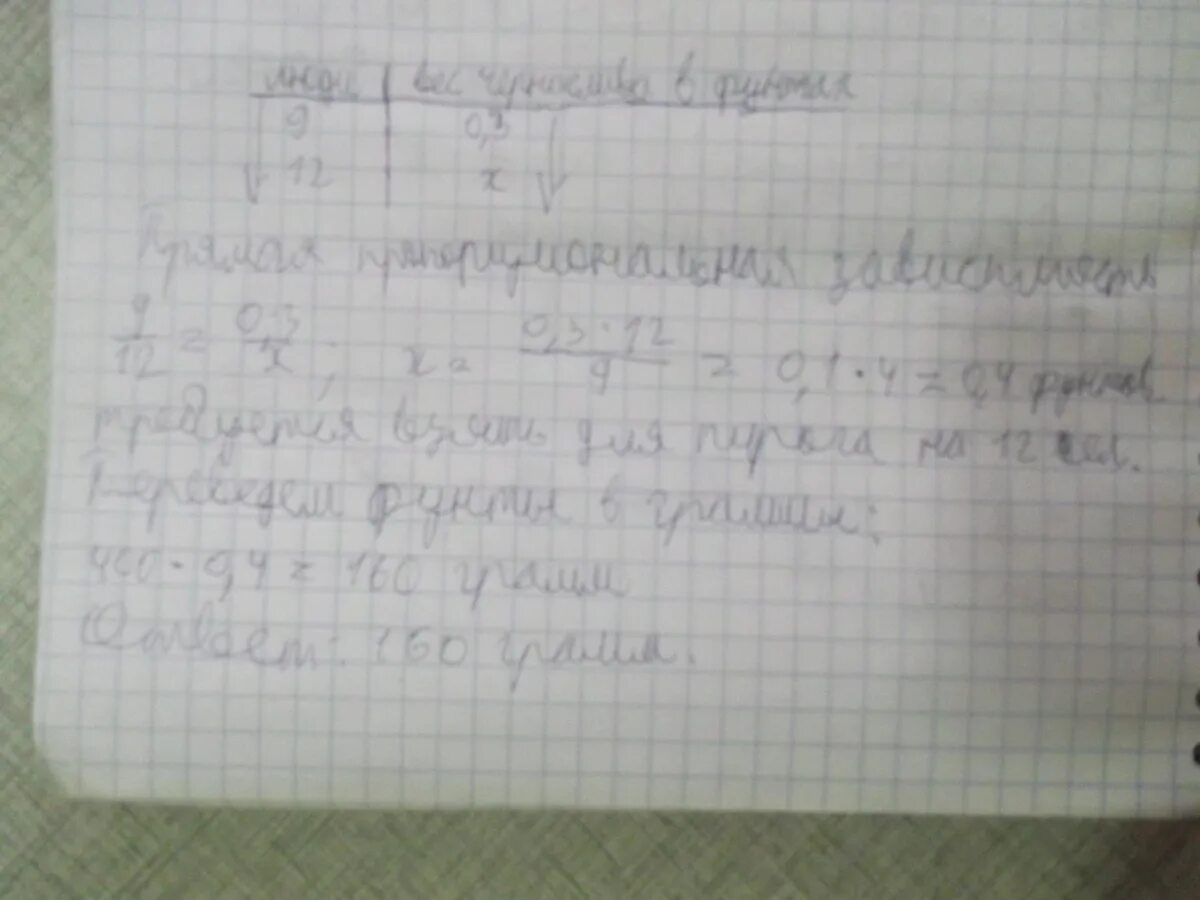 людей вес чернослива в фунтах
9 0,3
12 x
Прямая пропорциональная зависимость
9/12 = 0,3/x; x = 0,3·12/9 = 0,1·4 = 0,4 фунтов
требуется взять для пирога на 12 чел.
Переведем фунты в граммы:
400·0,4=160 грамм
Ответ: 160 грамм.